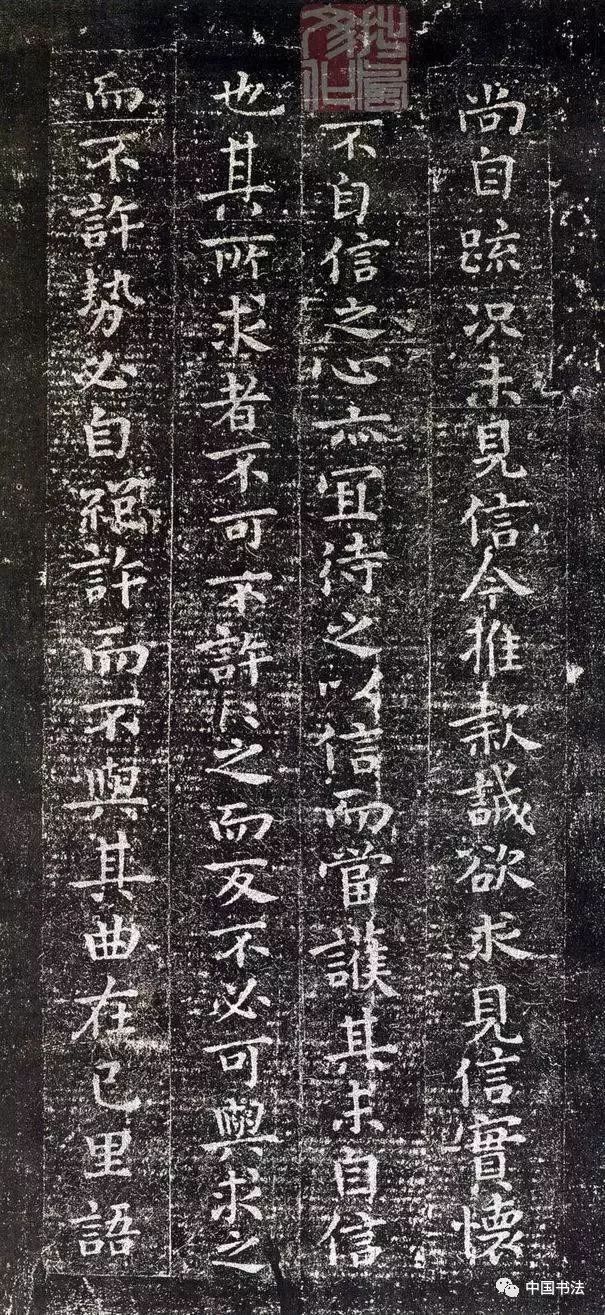 尚自疏况未見信今推款誠欲求見信實懷
不自信之心亦宜待之以信而當護其未自信
也其所求者不可不許之而反不必可與求之
而不許勢必自絕許而不與其曲在己里語
中国书法